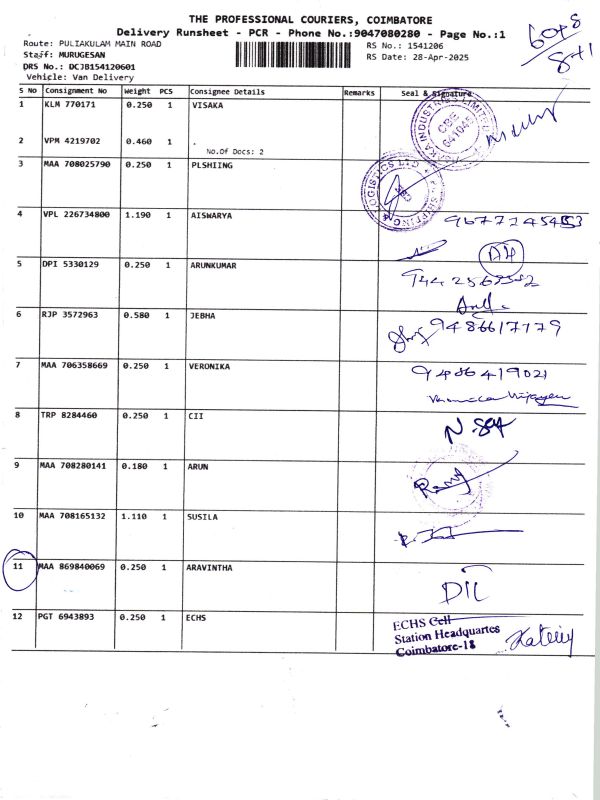 THE PROFESSIONAL COURIERS, COIMBATORE
Delivery Runsheet - PCR - Phone No.:9047080280 - Page No.:1
Route: PULIAKULAM MAIN ROAD
RS No.: 1541206
Staff: MURUGESAN
RS Date: 28-Apr-2025
DRS No.: DCJB154120601
Vehicle: Van Delivery
S No Consignment No Weight PCS Consignee Details Remarks Seal & Signature
1 KLM 770171 0.250 1 VISAKA
2 VPM 4219702 0.460 1
No.Of Docs: 2
CBE 641045
3 MAA 708025790 0.250 1 PLSHIING
4 VPL 226734800 1.190 1 AISWARYA
5 DPI 5330129 0.250 1 ARUNKUMAR
6 RJP 3572963 0.580 1 JEBHA
9486617179
7 MAA 706358669 0.250 1 VERONIKA
9486419021
8 TRP 8284460 0.250 1 CII
9 MAA 708280141 0.180 1 ARUN
10 MAA 708165132 1.110 1 SUSILA
11 MAA 869840069 0.250 1 ARAVINTHA
12 PGT 6943893 0.250 1 ECHS
ECHS Cell
Station Headquartes
Coimbatore-18